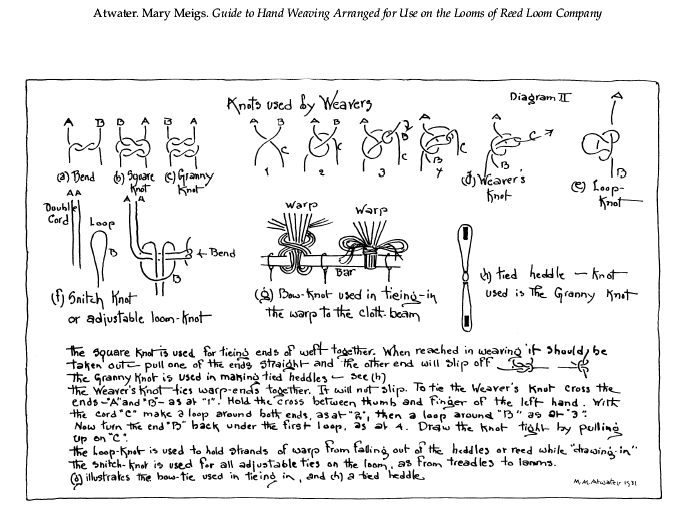 Atwater. Mary Meigs. Guide to Hand Weaving Arranged for Use on the Looms of Reed Loom Company
Knots used by Weavers
Diagram II
A B B A B A
(a) Bend (b) Square Knot (c) Granny Knot
A B C 1
A B C 2
A B 2 C 3
A C B 4
A C B
(d) Weaver's Knot
A B
(e) Loop-Knot
AA
Double Cord
Loop
B
A A
← Bend
B
(f) Snitch Knot
or adjustable loom-knot
Warp Warp
Bar
(g) Bow-Knot used in tieing-in
the warp to the cloth-beam
(h) tied heddle — Knot
used is the Granny Knot
The Square Knot is used for tieing ends of weft together. When reached in weaving it should be
taken out — pull one of the ends straight and the other end will slip off
The Granny Knot is used in making tied heddles — see (h)
The Weaver's Knot ties warp-ends together. It will not slip. To tie the Weaver's Knot cross the
ends "A" and "B" as at "1". Hold the cross between thumb and finger of the left hand. With
the cord "C" make a loop around both ends, as at "2", then a loop around "B" as at "3".
Now turn the end "B" back under the first loop, as at 4. Draw the knot tight by pulling
up on "C".
The Loop-Knot is used to hold strands of warp from falling out of the heddles or reed while "drawing-in"
The Snitch-Knot is used for all adjustable ties on the loom, as from treadles to lamms.
(g) illustrates the bow-tie used in tieing in, and (h) a tied heddle
M.M. Atwater 1931